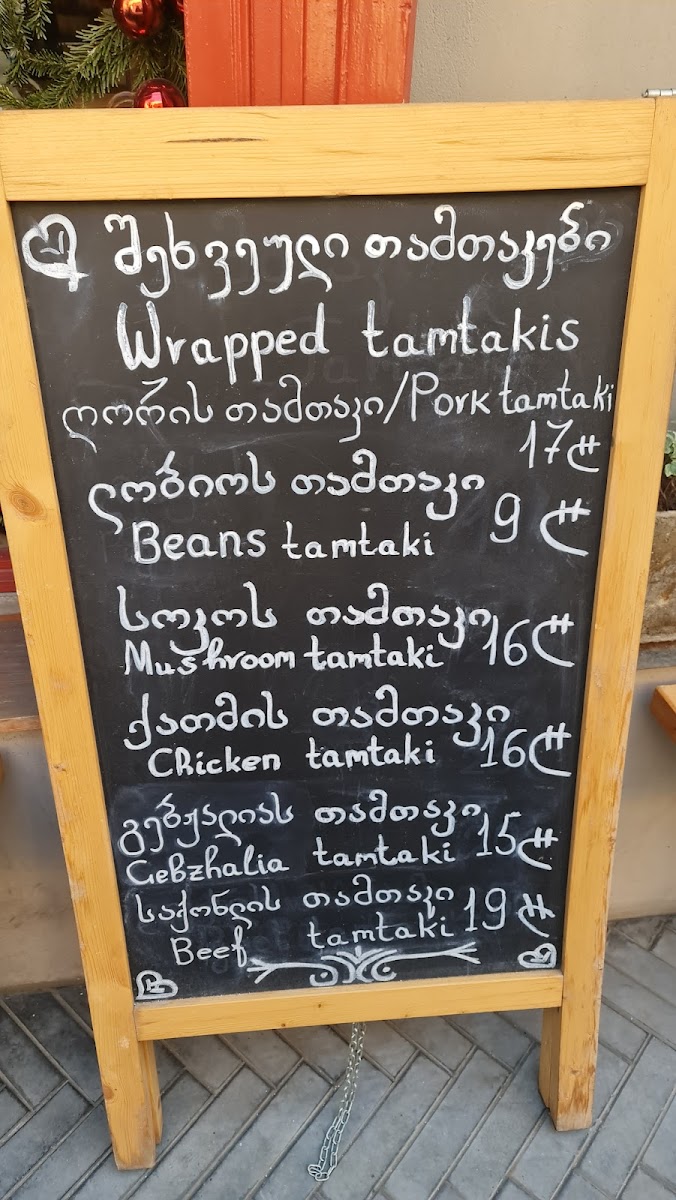 შეხვეული თამთაკები
Wrapped tamtakis
ღორის თამთაკი/Pork tamtaki
17₾
ლობიოს თამთაკი
Beans tamtaki 9 ₾
სოკოს თამთაკი
Mushroom tamtaki 16₾
ქათმის თამთაკი
Chicken tamtaki 16₾
გებჟალიას თამთაკი
Gebzhalia tamtaki 15₾
საქონლის თამთაკი 19₾
Beef tamtaki